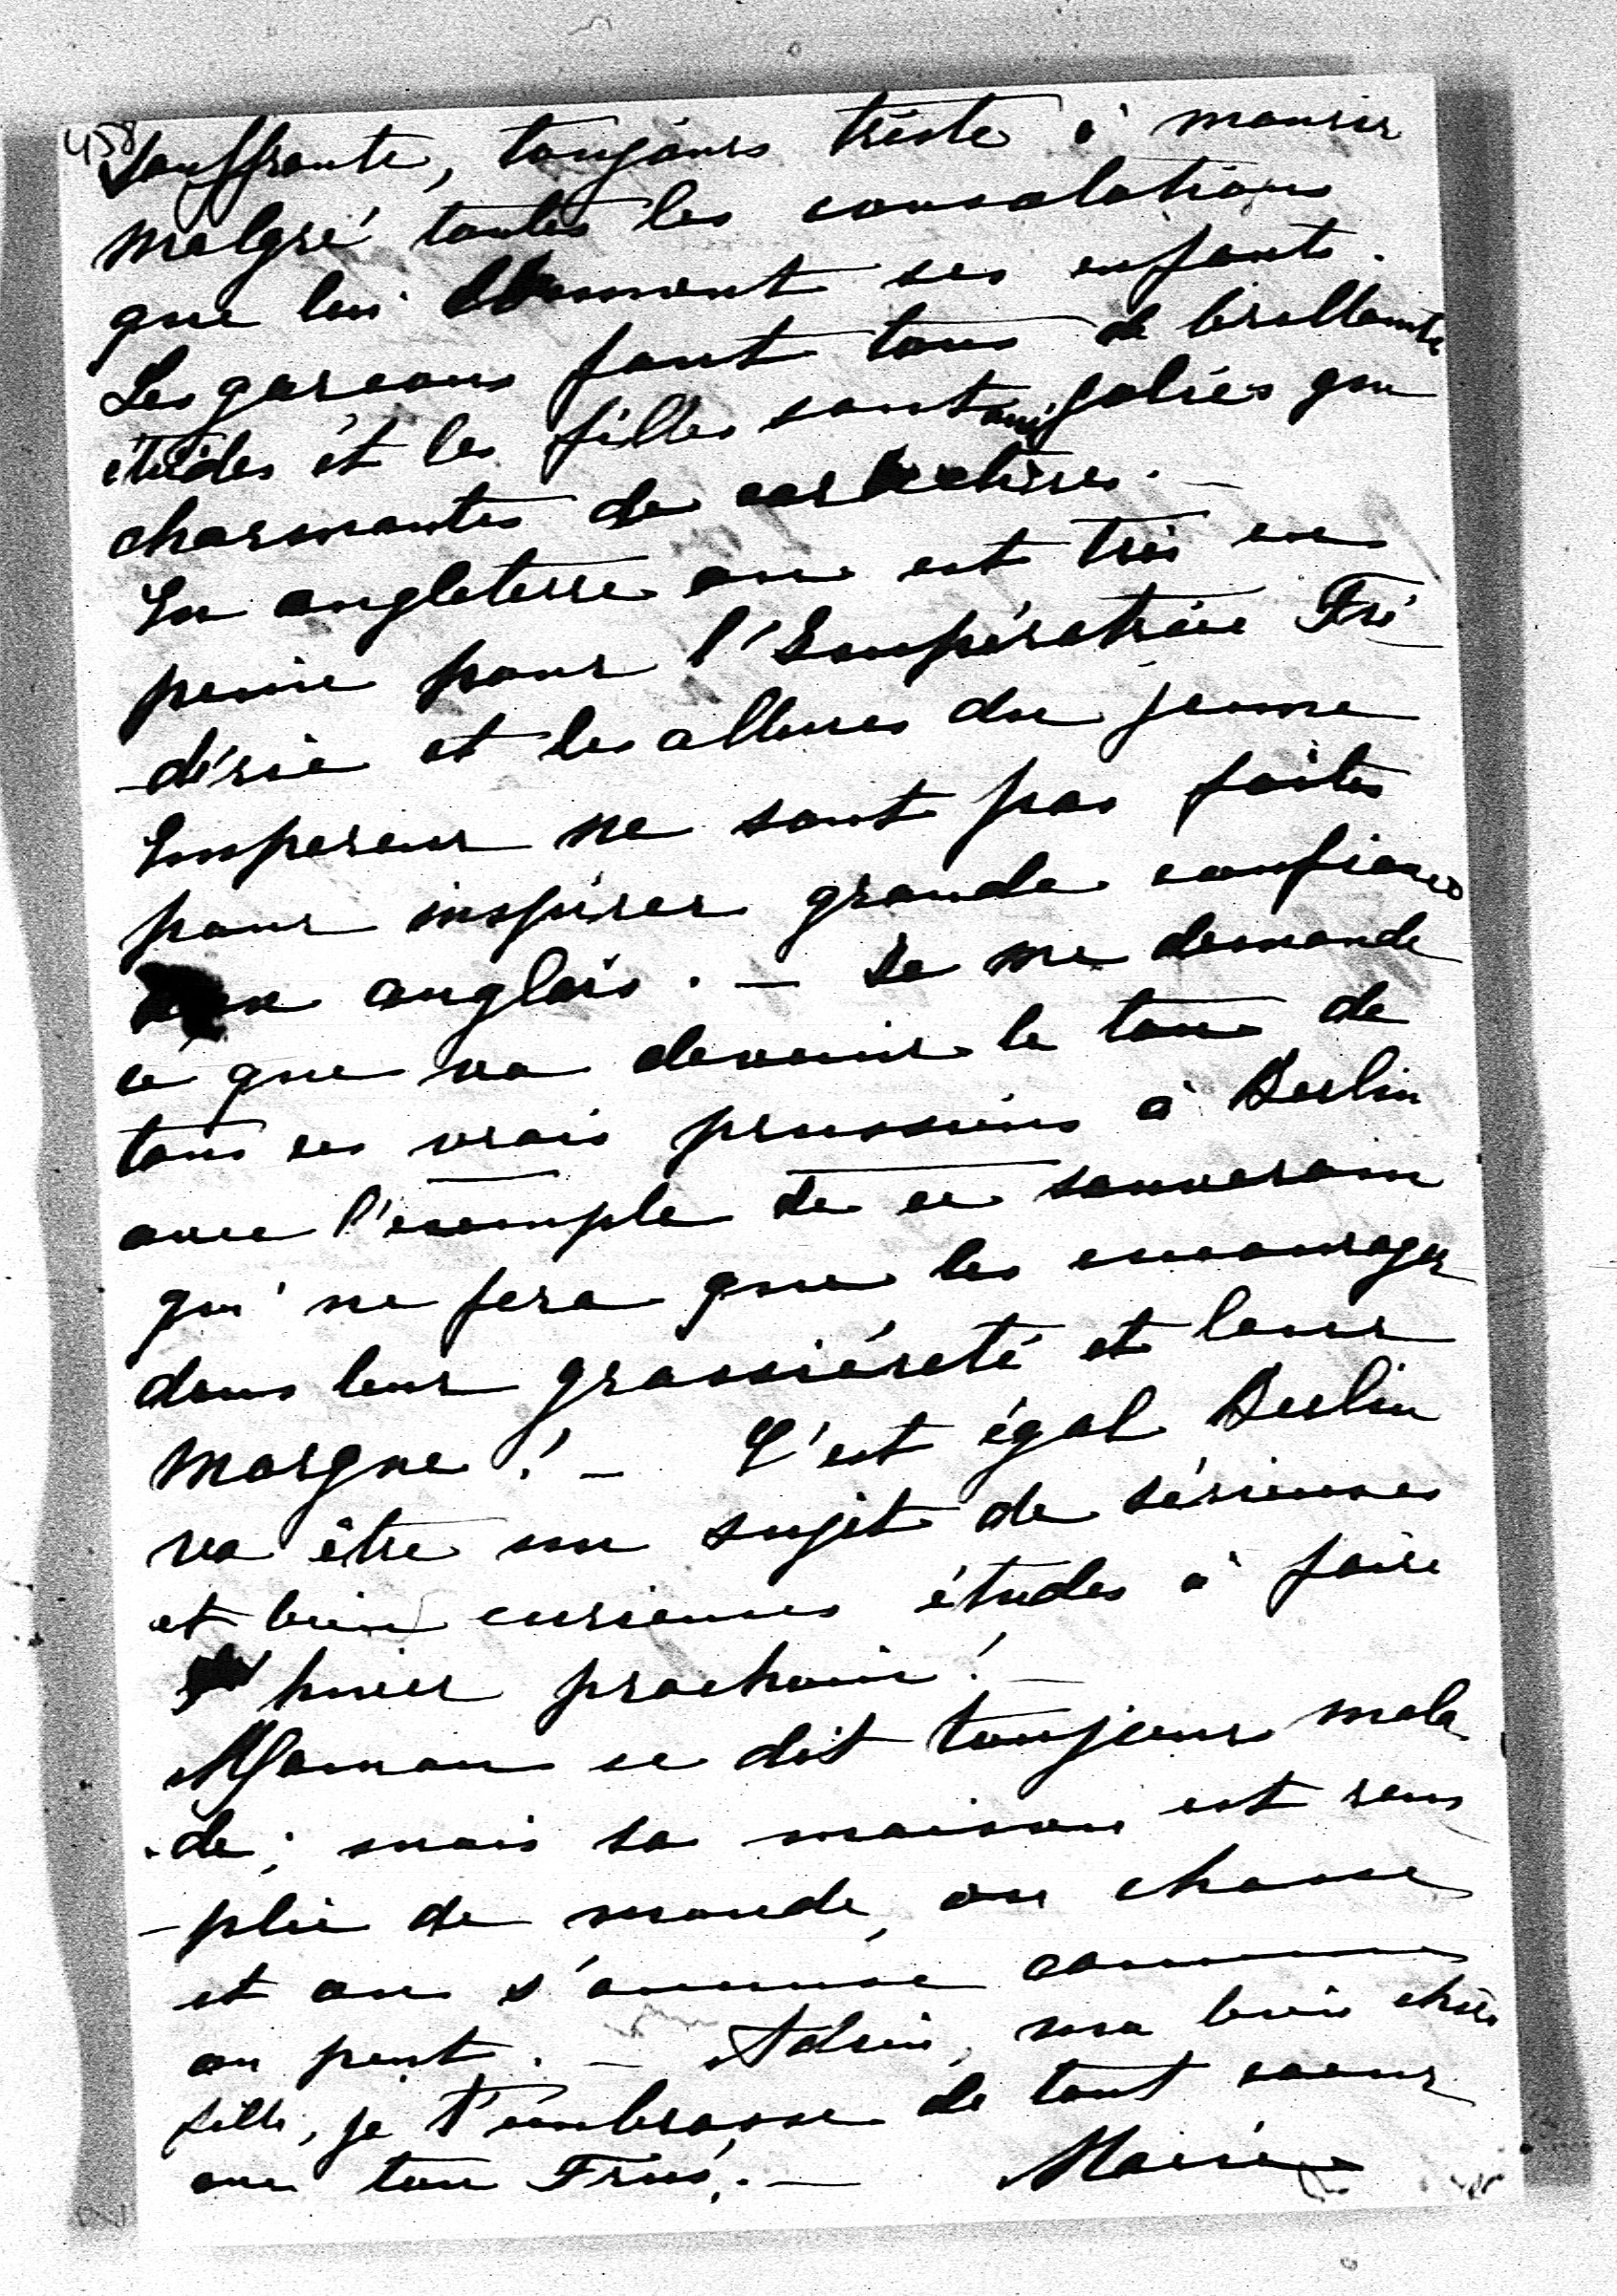 458
souffrante, toujours triste à mourir
malgré toutes les consolations
que lui donnent ses enfants.
Les garcons font tous de brillante
études et les filles sont aussi jolies que
charmantes de caractères. —
En angleterre on est très en
peine pour l'Impératrice Fré
-déric et les allures du jeune
Empereur ne sont pas faites
pour inspirer grande confiance
aux anglais. — Je me demande
ce que va devenir le ton de
tous ces vrais prussiens à Berlin
avec l'exemple de ce souverain
qui ne fera que les encourager
dans leur grossièreté et leur
morgue! — C'est égal Berlin
va être un sujet de sérieuses
et bien curieuses études à faire
hiver prochain! —
Maman se dit toujours mala
-de; mais sa maison est rem
-plie de monde, on chasse
et on s'amuse comme
on peut. — Adieu, ma bien chère
fille, je t'embrasse de tout coeur
avec ton —
Marie